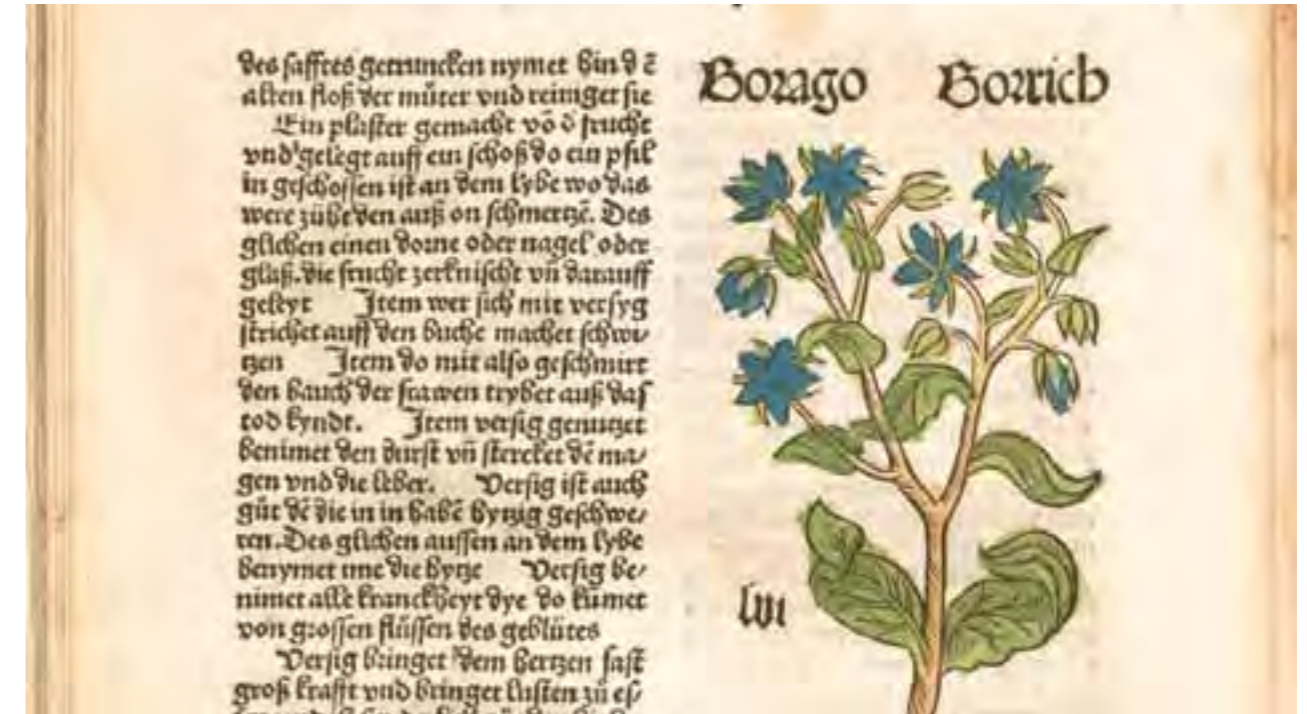 des safftes getruncken nymet hin dē
alten floß der můter vnd reiniget sie
Ein plaster gemacht vō d̄ frucht
vnd gelegt auff ein schoß do ein pfil
in geschossen ist an dem lybe wo das
were zühet den auß on schmertzē. Des
glichen einen dorne oder nagel oder
glaß. die frucht zerknischt vn̄ darauff
geleyt Item wer sich mit versyg
strichet auff den buche machet schwi⸗
tzen Item do mit also geschmirt
den bauch der frawen trybet auß das
tod kyndt. Item versig genutzet
benimet den durst vn̄ stercket dē ma⸗
gen vnd die leber. Versig ist auch
gůt dē die in in habē hytzig geschwe⸗
ren. Des glichen aussen an dem lybe
benymet ine die hytze Versig be⸗
nimet alle kranckheyt dye do kūmet
von grossen flüssen des geblütes
Versig bringet dem hertzen fast
groß krafft vnd bringet lusten zů es⸗
Borago Borrich
lvi